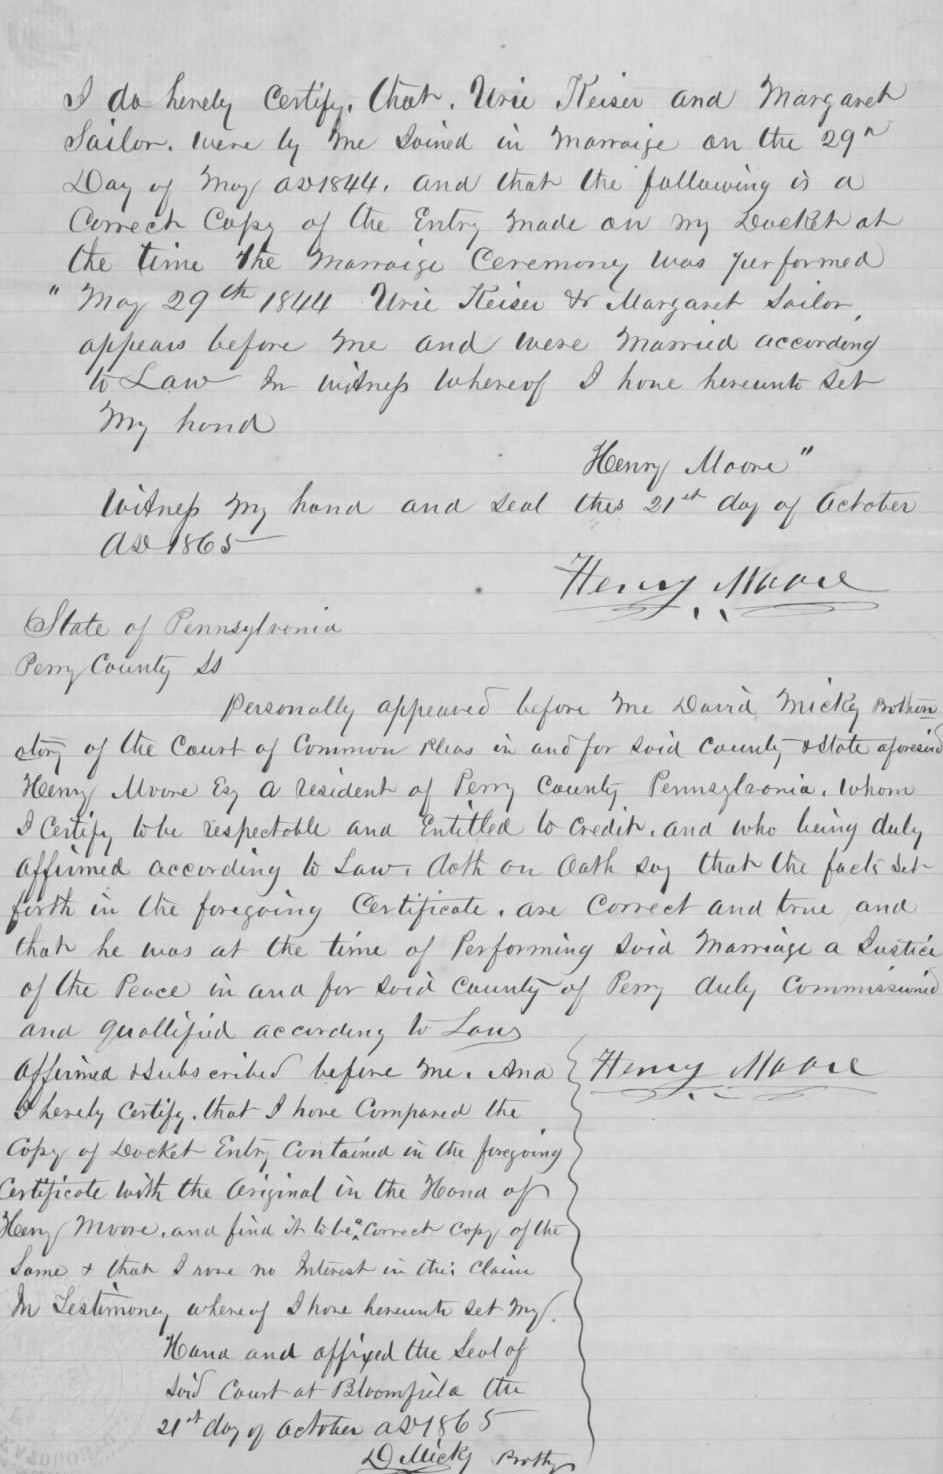 I do hereby Certify, that, Urie Keiser and Margaret
Sailor, were by me Joined in Marraige on the 29th
Day of May AD 1844, and that the following is a
Correct Copy of the Entry made on my Docket at
the time the Marraige Ceremony was performed
" May 29th 1844 Urie Keiser & Margaret Sailor,
appears before me and were Married according
to Law In witness whereof I have hereunto set
My hand
Henry Moore "
Witness my hand and seal this 21st day of October
AD 1865
Henry Moore
State of Pennsylvania
Perry County SS
Personally appeared before me David Micky Prothon
otary of the Court of Common pleas in and for said county & state aforesaid
Henry Moore Esq a resident of Perry County Pennsylvania, whom
I Certify to be respectable and Entitled to credit, and who being duly
affirmed according to Law, doth on Oath say that the facts set
forth in the foregoing Certificate, are Correct and true and
that he was at the time of Performing said Marriage a Justice
of the Peace in and for said County of Perry duly Commissioned
and quallified according to Law
Affirmed & Subscribed before me, And
I hereby certify, that I have Compared the
Copy of Docket Entry Contained in the foregoing
Certificate with the Original in the Hand of
Henry Moore, and find it to be a Correct Copy of the
Same & that I have no Interest in this Claim
In Testimoney whereof I have hereunto set my
Hand and affixed the Seal of
said Court at Bloomfield the
21st day of October AD 1865
D Micky Prothy
Henry Moore